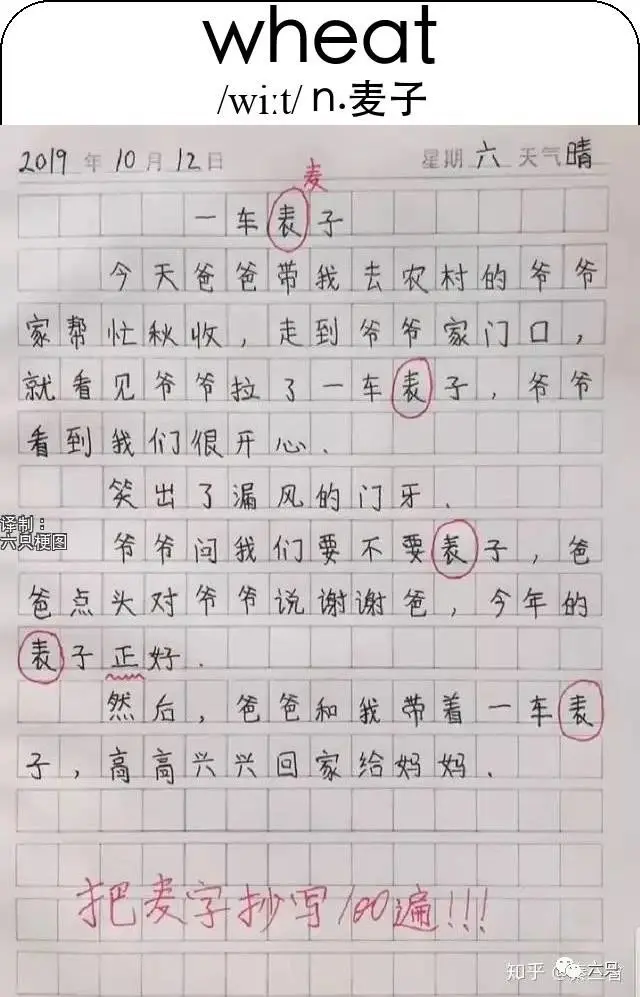 wheat
/wiːt/ n.麦子
2019年10月12日 星期六 天气晴
麦
一车表子
今天爸爸带我去农村的爷爷
家帮忙秋收，走到爷爷家门口，
就看见爷爷拉了一车表子，爷爷
看到我们很开心.
笑出了漏风的门牙.
译制：
六只梗图
爷爷问我们要不要表子，爸
爸点头对爷爷说谢谢爸，今年的
表子正好.
然后，爸爸和我带着一车表
子，高高兴兴回家给妈妈.
把麦字抄写100遍!!!
知乎 六只